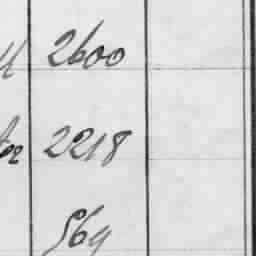 2600
2218
569